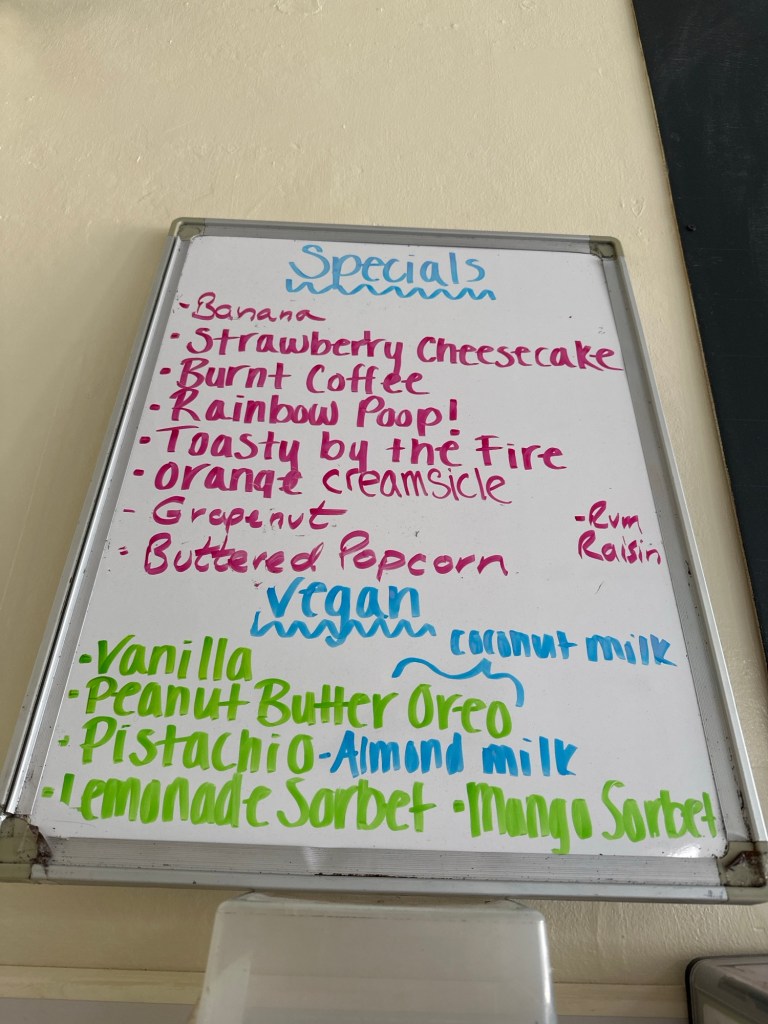 Specials
-Banana
-Strawberry Cheesecake
-Burnt Coffee
-Rainbow Poop!
-Toasty by the Fire
-orange creamsicle
- Grapenut
-Rum
Raisin
- Buttered Popcorn
Vegan
coconut milk
-Vanilla
-Peanut Butter Oreo
-Pistachio -Almond milk
-Lemonade Sorbet -Mango Sorbet